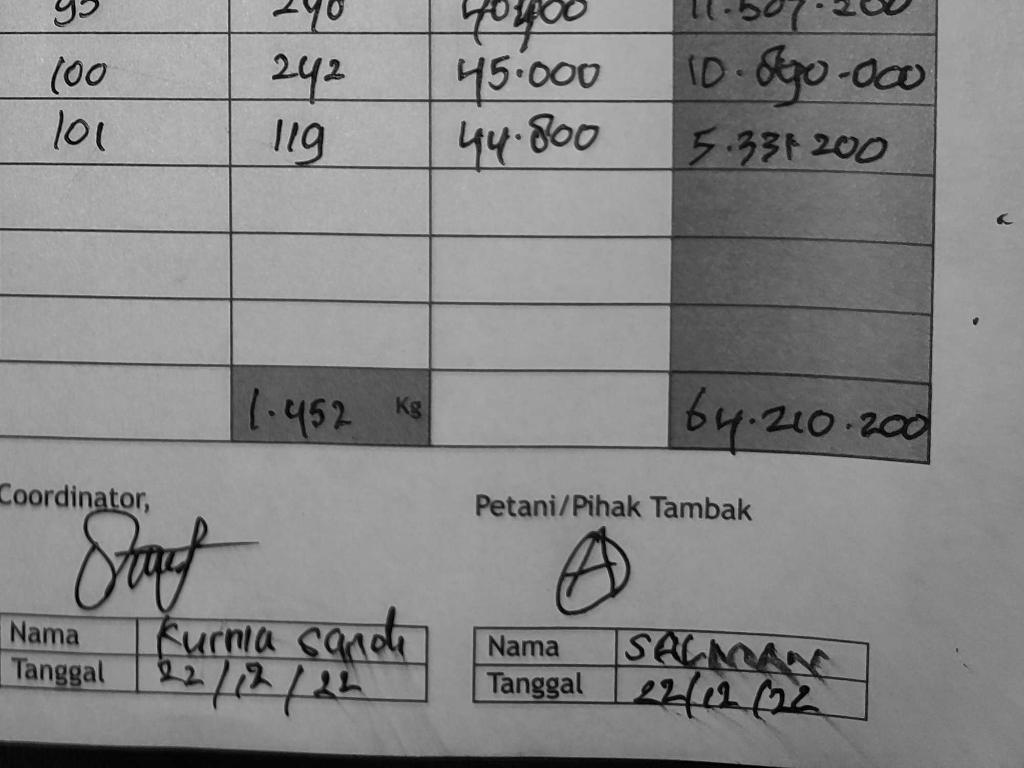 100 242 45.000 10.890.000
101 119 44.800 5.331 200
1.452 Kg 64.210.200
Coordinator, Petani/Pihak Tambak
Nama Kurnia Sandi Nama SALMAN
Tanggal 22/12/22 Tanggal 22/12/22